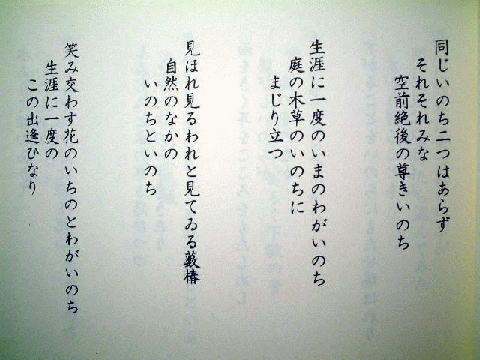 同じいのち二つはあらず
それぞれみな
空前絶後の尊きいのち
生涯に一度のいまのわがいのち
庭の木草のいのちに
まじり立つ
見ほれ見るわれと見てゐる藪椿
自然のなかの
いのちといのち
笑み交わす花のいちのとわがいのち
生涯に一度の
この出逢ひなり